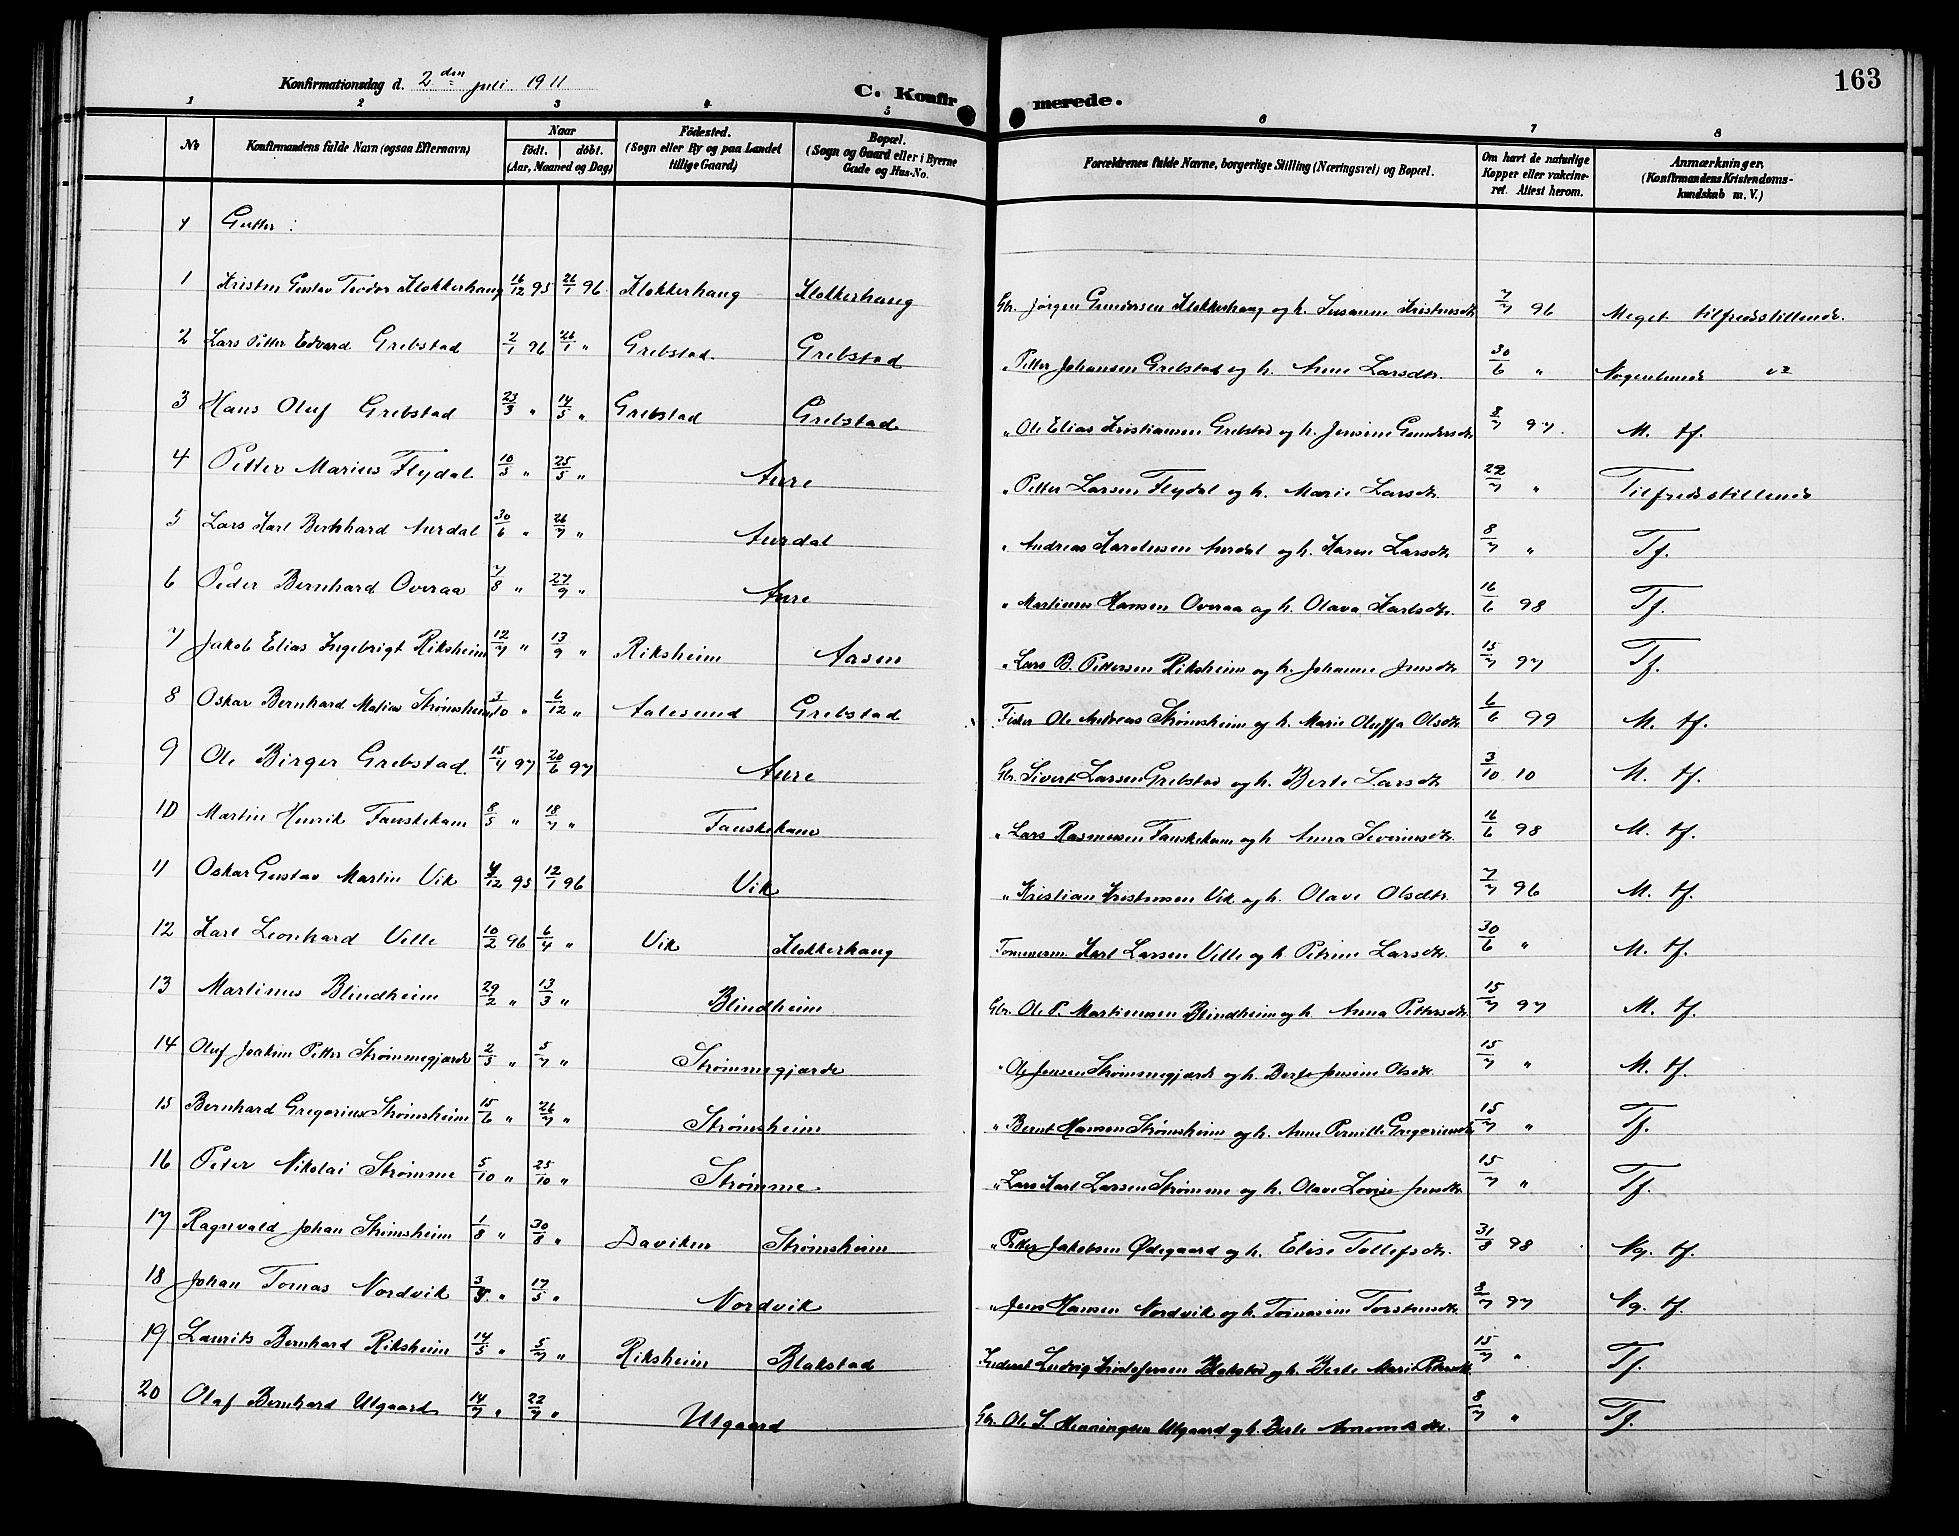 163
Konfirmationsdag d. 2den juli 1911
C. Konfirmerede.
1 2 3 4 5 6 7 8
No Konfirmandens fulde Navn (ogsaa Efternavn) Naar født. døbt. (Aar, Maaned og Dag) Fødested. (Sogn eller By og paa Landet tillige Gaard) Bopæl. (Sogn og Gaard eller i Byerne Gade og Hus-No. Forældrenes fulde Navne, borgerlige Stilling (Næringsvei) og Bopæl. Om havt de naturlige Kopper eller vakcineret. Attest herom. Anmærkninger. (Konfirmandens Kristendomskundskab m. V.)
Gutter:
1 Kristen Gustav Teodor Klokkerhaug 16/12 95 26/1 96 Klokkerhaug Klokkerhaug Gbr. Jørgen Gundersen Klokkerhaug og h. Susanne Kristensdtr 7/7 96 Meget tilfredsstillende.
2 Lars Petter Edvard Grebstad 2/1 96 26/1 " Grebstad Grebstad " Petter Johansen Grebstad og h. Anne Larsdtr. 30/6 " Nogenlunde
3 Hans Oluf Grebstad 23/3 " 14/5 " Grebstad Grebstad " Ole Elias Kristiansen Grebstad og h. Jensine Gundersdtr 8/7 97. M. tf.
4 Petter Marius Flydal 10/5 " 25/5 " Aure " Petter Larsen Flydal og h. Marie Larsdtr. 22/7 " Tilfredsstillende
5 Lars Karl Bernhard Aurdal 30/6 " 26/7 " Aurdal " Andreas Karolusen Aurdal og h. Karen Larsdtr. 8/7 " Tf.
6 Peder Bernhard Overaa 7/8 " 27/9 " Aure " Martinus Hansen Overaa og h. Olava Karlsdtr. 16/6 98 Tf.
7 Jakob Elias Ingebrigt Riksheim 12/7 " 13/9 " Riksheim Aasen " Lars B. Pettersen Riksheim og h. Johanne Jensdtr 15/7 97 Tf.
8 Oskar Bernhard Matias Strømsheim 3/10 " 6/12 " Aalesund Grebstad Fisker Ole Andreas Strømsheim og h. Marie Oluffa Olsdtr 6/6 99 M. tf.
9 Ole Birger Grebstad 15/4 97 20/6 97 Aure Gbr. Sivert Larsen Grebstad og h. Berte Larsdtr 3/10 10 M. tf.
10 Martin Henrik Fauskekam 8/5 " 18/7 " Fauskekam " Lars Rasmussen Fauskekam og h. Anna Severinsdtr. 16/6 98 M. tf.
11 Oskar Gustav Martin Vik 4/12 95 12/1 96 Vik " Kristian Kristensen Vik og h. Olave Olsdtr. 7/7 96 M. tf.
12 Karl Leonhard Velle 10/2 96 6/4 " Vik Klokkerhaug Tømmerm. Karl Larsen Velle og h. Petrine Larsdtr. 30/6 " M. tf.
13 Martinus Blindheim 29/2 " 13/3 " Blindheim Gbr. Ole P. Martinussen Blindheim og h. Anna Pettersdtr 15/7 97 M. tf.
14 Oluf Joakim Petter Strømmegjærde 2/5 " 5/7 " Strømmegjærde " Ole Jensen Strømmegjærde og h. Berte Jensine Olsdtr 15/7 " M. tf.
15 Bernhard Gregorius Strømsheim 15/6 " 26/7 " Strømsheim " Bernt Hansen Strømsheim og h. Anne Pernille Gregoriusdtr 15/7 " Tf.
16 Peter Nikolai Strømme 5/10 " 25/10 " Strømme " Lars Karl Larsen Strømme og h. Olave Lovise Jensdtr. 15/7 " Tf.
17 Ragnvald Johan Strømsheim 1/8 " 30/8 " Daviken Strømsheim " Petter Jakobsen Ødegaard og h. Elise Tollefsdtr. 31/8 98 Ng. tf.
18 Johan Tomas Nordvik 3/4 " 17/5 " Nordvik " Jens Hansen Nordvik og h. Tomasine Torstensdtr. 8/7 97 Ng. tf.
19 Laurits Bernhard Riksheim 14/5 " 5/7 " Riksheim Blakstad Inderst Ludvig Kristofersen Blakstad og h. Berte Marie Petersdtr 15/7 " Tf.
20 Olaf Bernhard Utgaard 14/7 " 22/7 " Utgaard Gbr. Ole S. Henningsen Utgaard og h. Berte Amundsdtr. 8/7 " Tf.